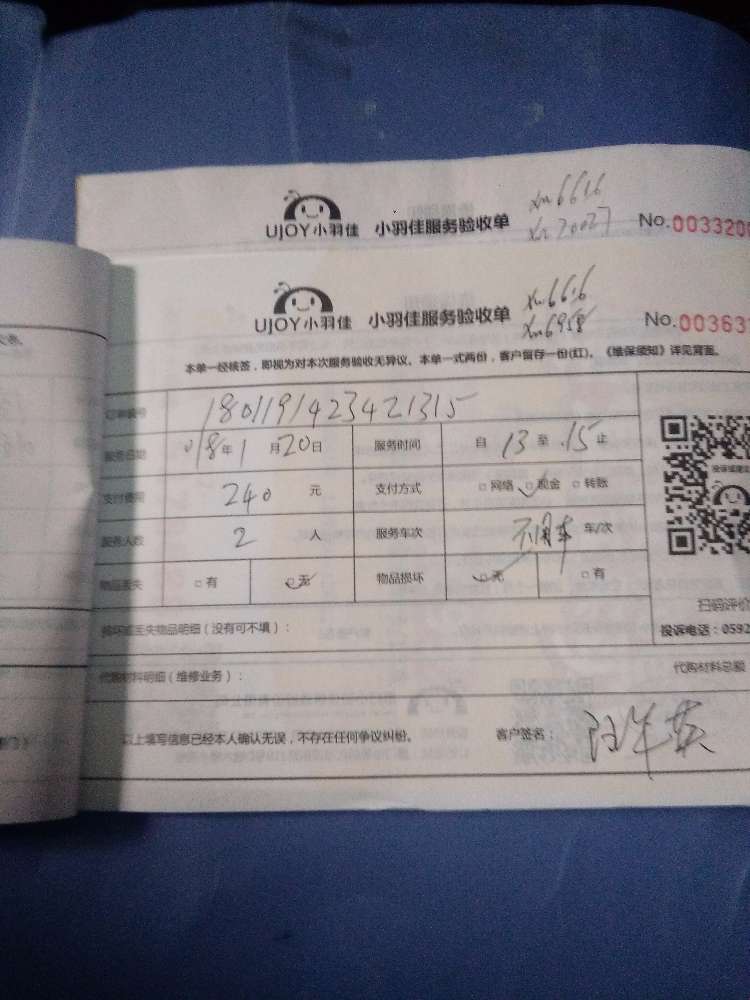 xm6616
UJOY小羽佳 小羽佳服务验收单 xm70027 No.003320
UJOY小羽佳 小羽佳服务验收单 xm6616 No.00363
xm6958
本单一经核签，即视为对本次服务验收无异议。本单一式两份，客户留存一份(红)。《维保须知》详见背面。
订单编号 1801191423421315
服务日期 018年1月20日 服务时间 自13至15止
支付费用 240元 支付方式 □网络 □现金 □转账
服务人数 2人 服务车次 不用车 车/次
物品丢失 □有 □无 物品损坏 □无 □有
扫码评价
损坏或丢失物品明细（没有可不填）： 投诉电话：0592
代购材料明细（维修业务）： 代购材料总额
以上填写信息已经本人确认无误，不存在任何争议纠纷。 客户签名：